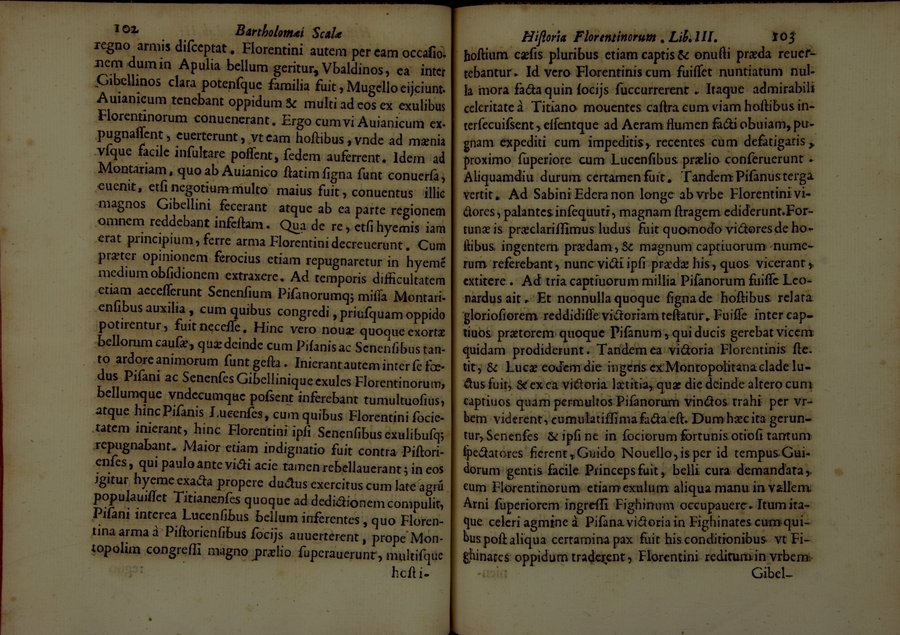 102 Bartholomæi Scalæ
regno armis disceptat. Florentini autem per eam occasio-
nem dum in Apulia bellum geritur, Vbaldinos, ea inter
Gibellinos clara potensque familia fuit, Mugello eijciunt.
Auianicum tenebant oppidum & multi ad eos ex exulibus
Florentinorum conuenerant. Ergo cum vi Auianicum ex-
pugnassent, euerterunt, vt eam hostibus, vnde ad mænia
vsque facile insultare possent, sedem auferrent. Idem ad
Montariam, quo ab Auianico statim signa sunt conuersa,
euenit, etsi negotium multo maius fuit, conuentus illic
magnos Gibellini fecerant atque ab ea parte regionem
omnem reddebant infestam. Qua de re, etsi hyemis iam
erat principium, ferre arma Florentini decreuerunt. Cum
præter opinionem ferocius etiam repugnaretur in hyemē
medium obsidionem extraxere. Ad temporis difficultatem
etiam accesserunt Senensium Pisanorumq; missa Montari-
ensibus auxilia, cum quibus congredi, priusquam oppido
potirentur, fuit necesse. Hinc vero nouæ quoque exortæ
bellorum causæ, quæ deinde cum Pisanis ac Senensibus tan-
to ardore animorum sunt gesta. Inierant autem inter se fœ-
dus Pisani ac Senenses Gibellinique exules Florentinorum,
bellumque vndecumque possent inferebant tumultuosius,
atque hinc Pisanis Lucenses, cum quibus Florentini socie-
tatem inierant, hinc Florentini ipsi Senensibus exulibusq;
repugnabant. Maior etiam indignatio fuit contra Pistori-
enses, qui paulo ante victi acie tamen rebellauerant; in eos
igitur hyeme exacta propere ductus exercitus cum late agrū
populauisset Titianenses quoque ad deditionem compulit,
Pisani interea Lucensibus bellum inferentes, quo Floren-
tina arma à Pistoriensibus socijs auuerterent, prope Mon-
topolim congressi magno prælio superauerunt, multisque
hosti-
Historia Florentinorum. Lib. III. 103
hostium cæsis pluribus etiam captis & onusti præda reuer-
tebantur. Id vero Florentinis cum fuisset nuntiatum nul-
la mora facta quin socijs succurrerent. Itaque admirabili
celeritate à Titiano mouentes castra cum viam hostibus in-
tersecuissent, essentque ad Aeram flumen facti obuiam, pu-
gnam expediti cum impeditis, recentes cum defatigaris,
proximo superiore cum Lucensibus prælio conseruerunt.
Aliquamdiu durum certamen fuit. Tandem Pisanus terga
vertit. Ad Sabini Edera non longe ab vrbe Florentini vi-
ctores, palantes insequuti, magnam stragem ediderunt. For-
tunæ is præclarissimus ludus fuit quomodo victores de ho-
stibus ingentem prædam, & magnum captiuorum nume-
rum referebant, nunc victi ipsi prædæ his, quos vicerant,
extitere. Ad tria captiuorum millia Pisanorum fuisse Leo-
nardus ait. Et nonnulla quoque signa de hostibus relata
gloriosiorem reddidisse victoriam testatur. Fuisse inter cap-
tiuos prætorem quoque Pisanum, qui ducis gerebat vicem
quidam prodiderunt. Tandem ea victoria Florentinis ste-
tit, & Lucæ eodem die ingens ex Montopolitana clade lu-
ctus fuit, & ex ea victoria lætitia, quæ die deinde altero cum
captiuos quam permultos Pisanorum vinctos trahi per vr-
bem viderent, cumulatissima facta est. Dum hæc ita gerun-
tur, Senenses & ipsi ne in sociorum fortunis otiosi tantum
spectatores fierent, Guido Nouello, is per id tempus Gui-
dorum gentis facile Princeps fuit, belli cura demandata,
eum Florentinorum etiam exulum aliqua manu in vallem
Arni superiorem ingressi Fighinum occupauere. Itum ita-
que celeri agmine à Pisana victoria in Fighinates cum qui-
bus post aliqua certamina pax fuit his conditionibus vt Fi-
ghinates oppidum traderent, Florentini reditum in vrbem
Gibel-